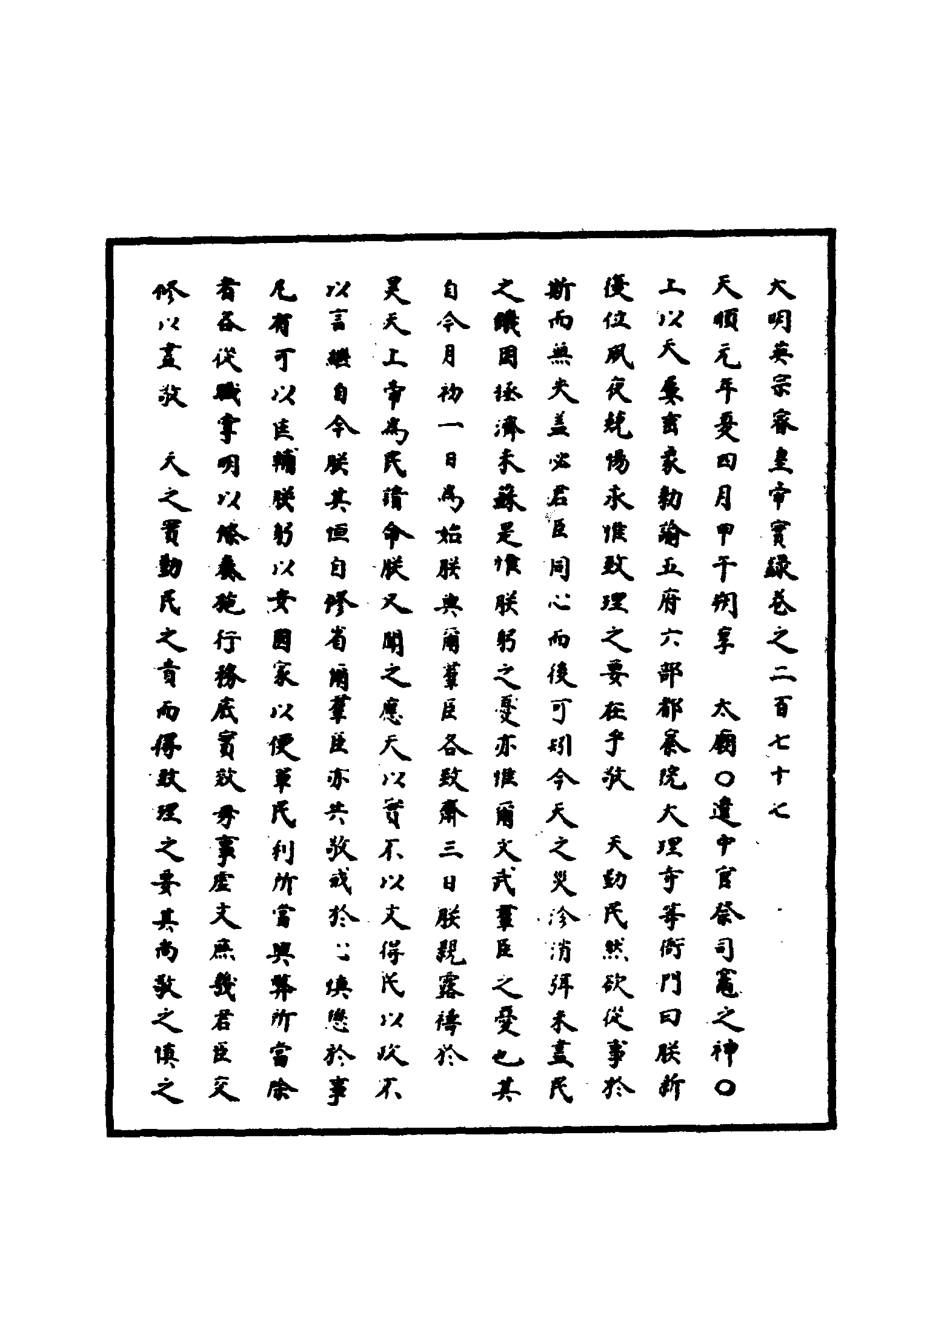 大明英宗睿皇帝實錄卷之二百七十七
天順元年夏四月甲午朔享　太廟○遣中官祭司竈之神○
上以天屢雨霾勑諭五府六部都察院大理寺等衙門曰朕新
復位夙夜兢惕永惟致理之要在乎敬　天勤民然欲從事於
斯而無失盖必君臣同心而後可矧今天之災沴消弭未盡民
之饑困拯濟未蘇是惟朕躬之憂亦惟爾文武羣臣之憂也其
自今月初一日爲始朕與爾羣臣各致齋三日朕親露禱於
昊天上帝爲民請命朕又聞之應天以實不以文得民以政不
以言繼自今朕其恒自修省爾羣臣亦共敬戒於心慎懋於事
凡有可以匡輔朕躬以安國家以便軍民利所當興弊所當除
者各從職掌明以條奏施行務底實效毋事虛文庶幾君臣交
修以盡敬　天之實勤民之責而得致理之要其尚敬之慎之